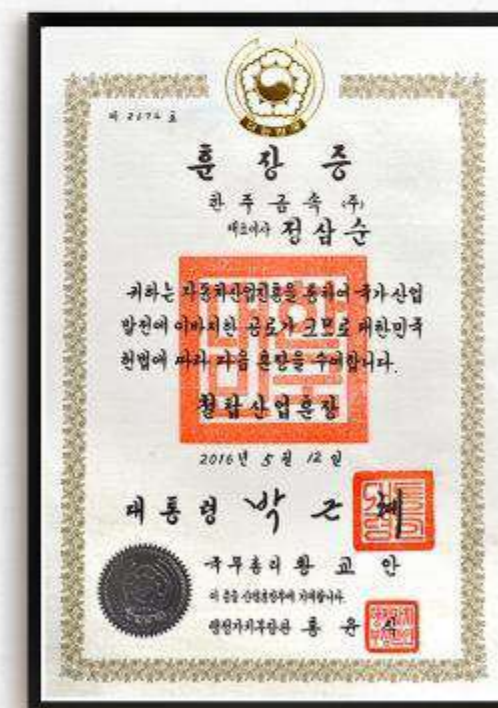 대한민국
제 2172 호
훈장증
한주금속 (주)
대표이사 정삼순
귀하는 자동차산업진흥을 통하여 국가산업
발전에 이바지한 공로가 크므로 대한민국
헌법에 따라 다음 훈장을 수여합니다.
철탑산업훈장
2016년 5월 12일
대통령 박근혜
국무총리 황교안
이 증을 산업훈장부에 기재합니다.
행정자치부장관 홍윤식